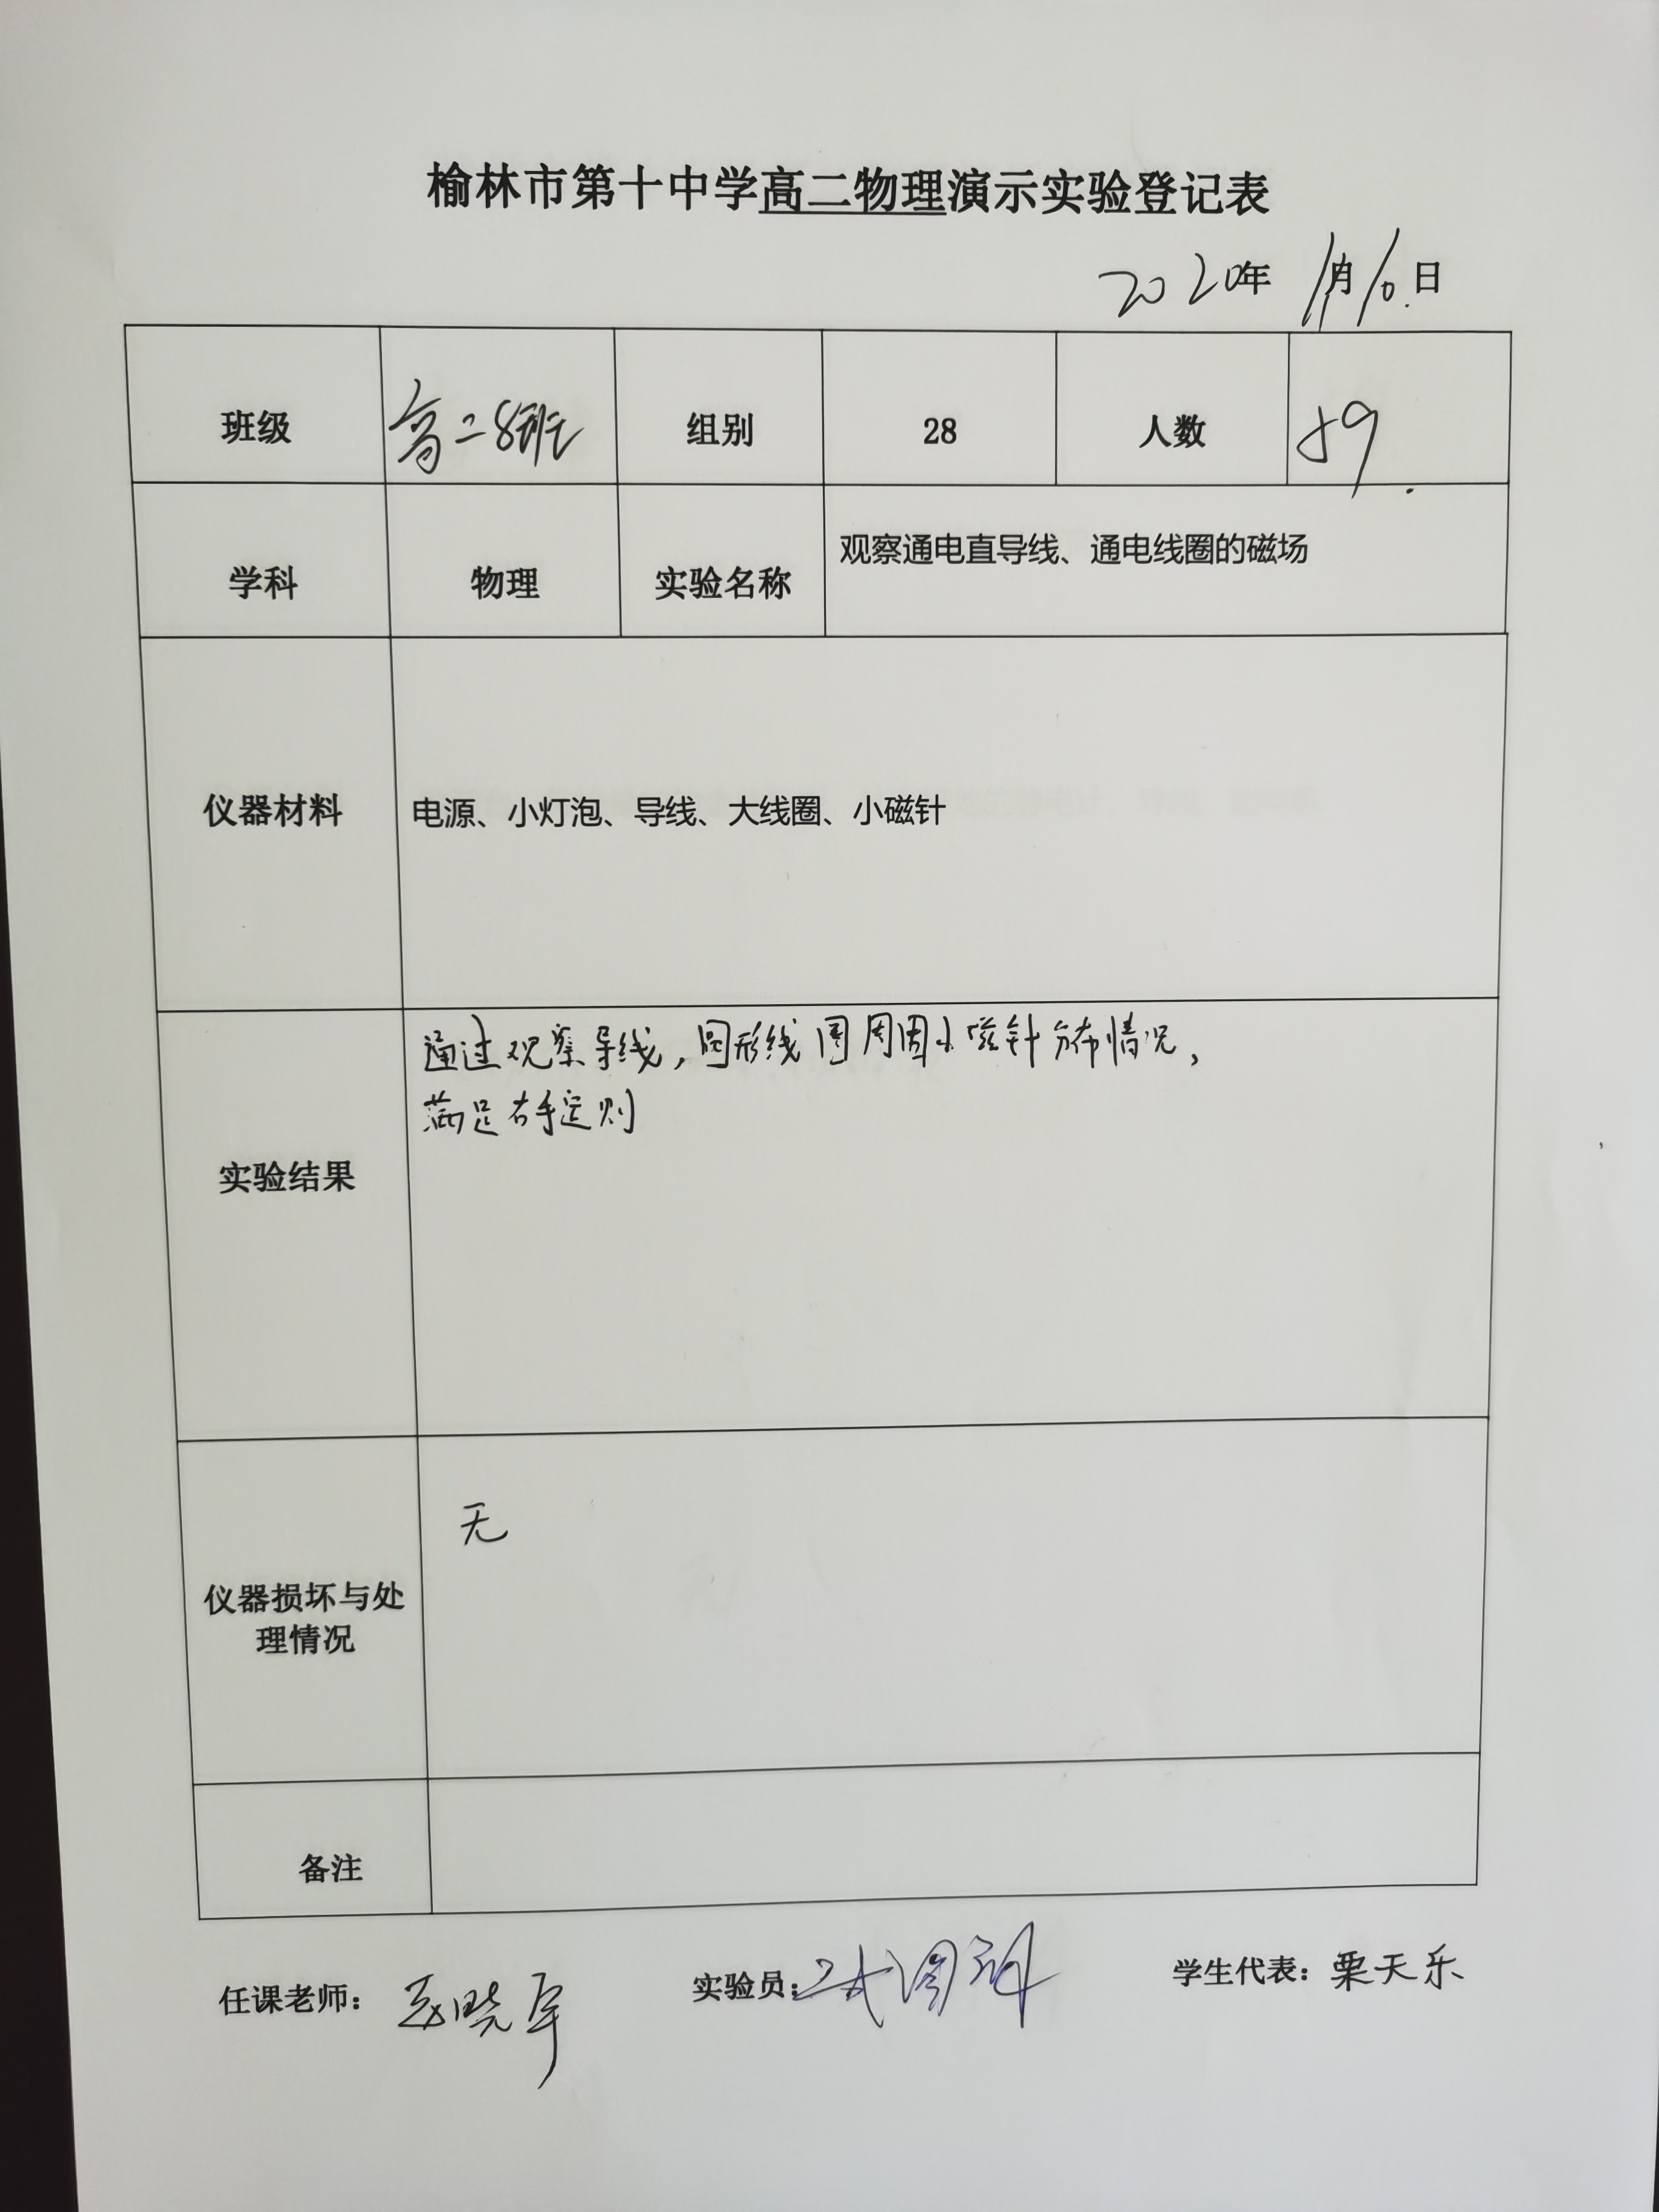 榆林市第十中学高二物理演示实验登记表
2020年11月10日
班级 高二8班 组别 28 人数 59
学科 物理 实验名称 观察通电直导线、通电线圈的磁场
仪器材料 电源、小灯泡、导线、大线圈、小磁针
通过观察导线,圆形线圈周围小磁针分布情况,
满足右手定则
实验结果
无
仪器损坏与处
理情况
备注
任课老师: 实验员: 学生代表:栗天乐